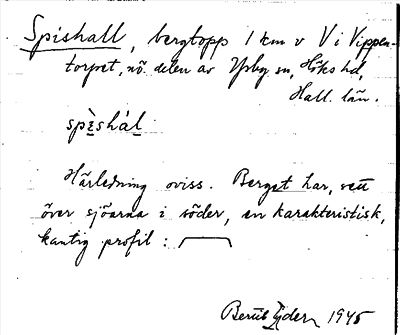 Spishall, bergtopp 1 km v V i Vippen-
torpet, nö. delen av Ysby sn, Höks hd,
Hall. län.
spìshàl
Härledning oviss. Berget har, sett
över sjöarna i söder, en karakteristisk,
kantig profil :
Bertil Ejder 1945